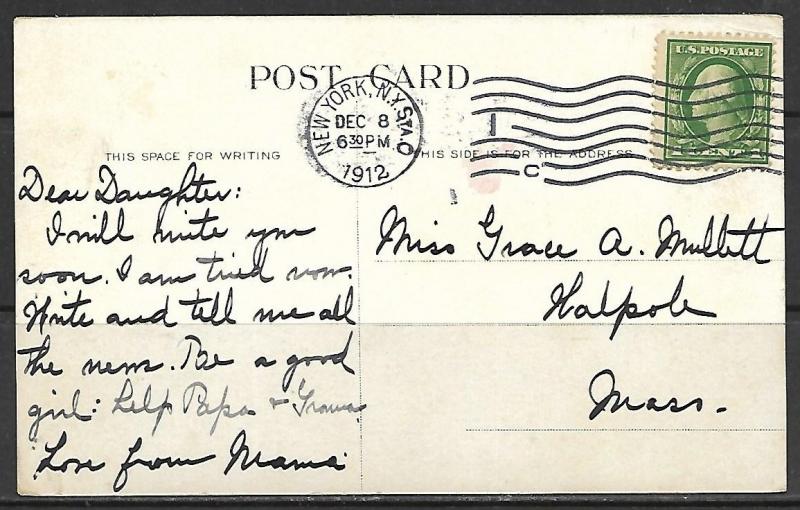 U.S. POSTAGE
POST CARD
NEW YORK, N.Y. STA. O
DEC 8
6 30 PM
1912
1
C
THIS SPACE FOR WRITING
THIS SIDE IS FOR THE ADDRESS
Dear Daughter:
I will write you
soon. I am tired now.
Write and tell me all
the news. Be a good
girl: help Papa + Grama
Love from Mama
Miss Grace A. Mullett
Walpole
Mass.